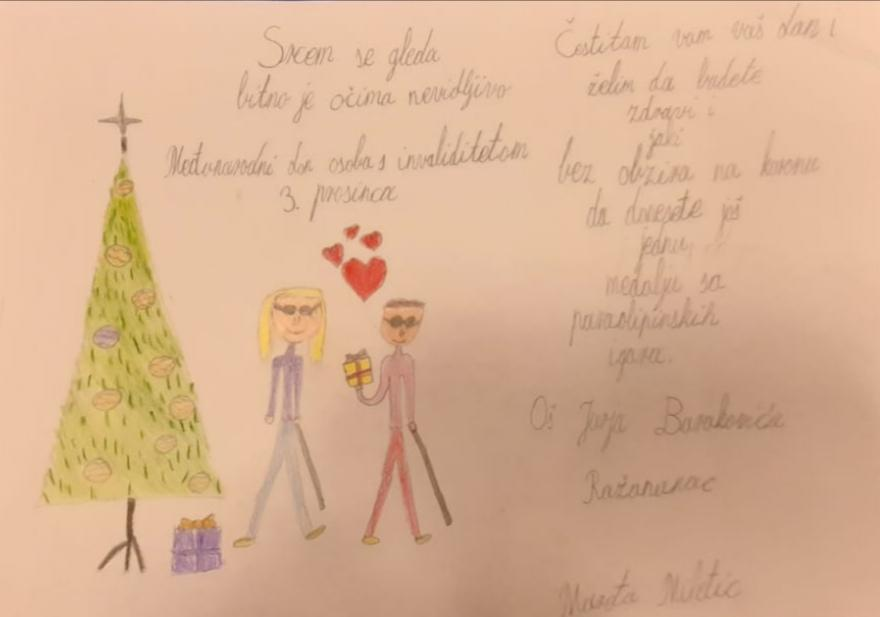 Srcem se gleda
bitno je očima nevidljivo
Međunarodni dan osoba s invaliditetom
3. prosinca
Čestitam vam vaš dan i
želim da budete
zdravi i
jaki
bez obzira na koronu
da donesete još
jednu
medalju sa
paraolipinskih
igara.
Oš Jurja Barakovića
Ražanac
Miletić